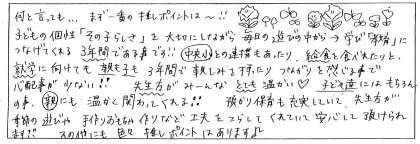 何と言っても... まず一番の推しポイントは〜!!
子どもの個性「その子らしさ」を大切にしながら毎日の遊びの中から学び「体育」に
つなげてくれる3年間である事です!! 中央小との連携もあったり、給食を食べれたりと、
就学に向けても親も子も3年間で親しみを持ったりつながりを感じる事で
心配事が少ない!! 先生方がみーんなとても温かい♡ 子ども達にはもちろん
の事、親にも温かく関わってくれる!! 預かり保育も充実していて、先生方が
季節の遊びや手作りおもちゃ作りなど工夫をこらしてくれていて安心して預けられ
ます!! その他にも色々推しポイントはありますよ